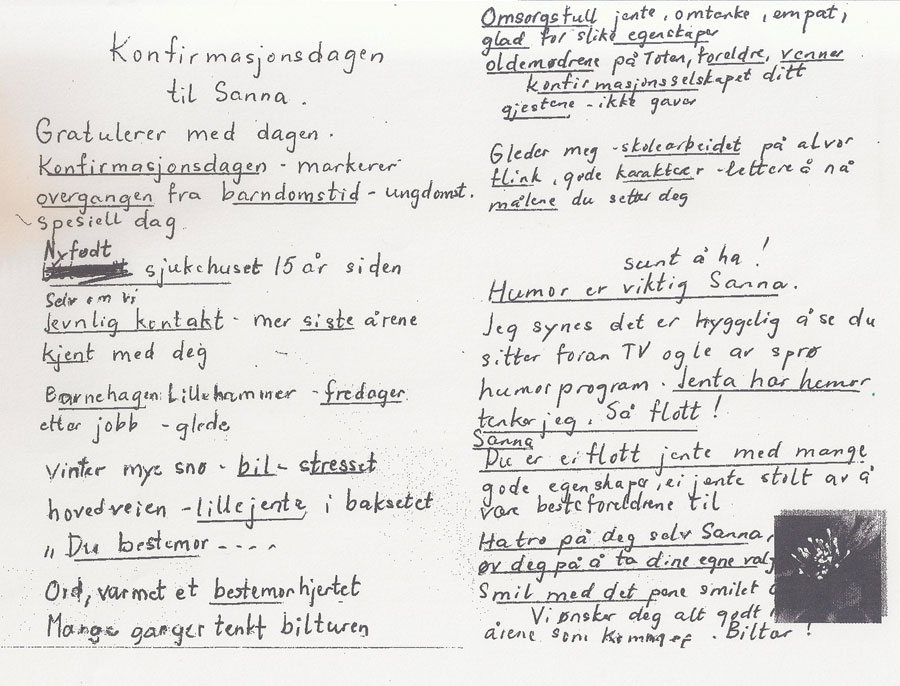 Konfirmasjonsdagen
til Sanna.
Gratulerer med dagen.
Konfirmasjonsdagen - markerer
overgangen fra barndomstid - ungdomst.
spesiell dag
Nyfødt
sjukehuset 15 år siden
Selv om vi
Jevnlig kontakt - mer siste årene
kjent med deg
Barnehagen Lillehammer - fredager
etter jobb - glede
Vinter mye snø - bil - stresset
hovedveien - lille jente i baksetet
"Du bestemor - - - -
Ord, varmet et bestemorhjertet
Mange ganger tenkt bilturen
Omsorgsfull jente, omtanke, empat,
glad for slike egenskaper
oldemødrene på Toten, foreldre, venner
konfirmasjonsselskapet ditt
gjestene - ikke gaver
Gleder meg - skolearbeidet på alvor
flink, gode karakterer - lettere å nå
målene du setter deg
sunt å ha!
Humor er viktig Sanna.
Jeg synes det er hyggelig å se du
sitter foran TV og le av sprø
humorprogram. Jenta har humor
tenker jeg. Så flott!
Sanna
Du er ei flott jente med mange
gode egenskaper, ei jente stolt av å
være besteforeldrene til
Ha tro på deg selv Sanna,
øv deg på å ta dine egne valg
Smil med det pene smilet
Vi ønsker deg alt godt i
årene som kommer. Biltur!